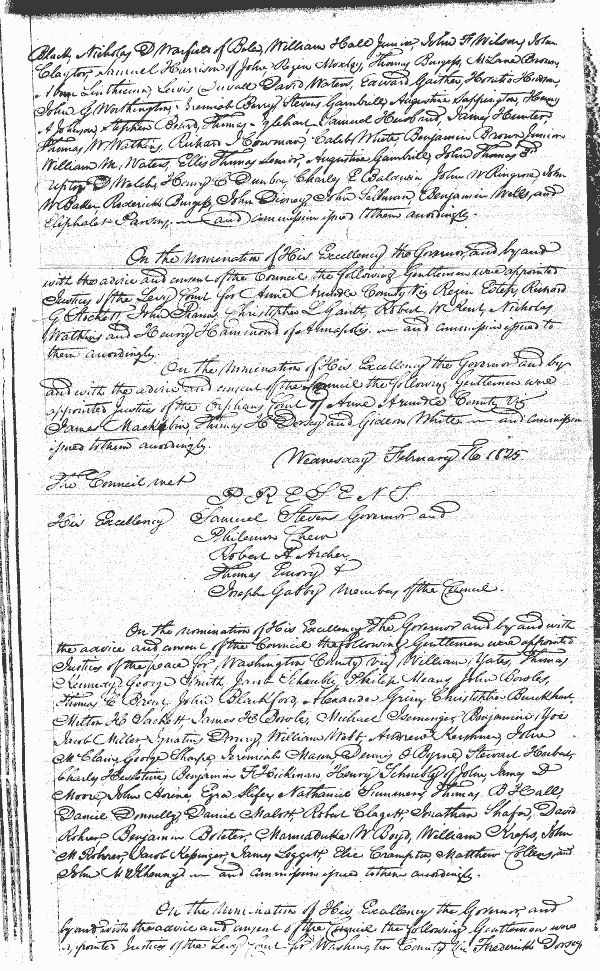 Black, Nicholas D Warfield of Bela, William Hall Junior, John F Wilson, John
Clayton, Samuel Harrison of John, Rezin Moxley, Thomas Burgess, McLane Brown,
Linthicum, Lewis Duvall David Waters, Edward Gaither, Horatio
John G Worthington Jeremiah Berry Stevens Gambrill, Augustine Sappington, Henry
A Johnson, Stephen Beard, Thomas Iglehart Samuel Husband, James Hunter,
Thomas W Watkins, Richard Bowman, Caleb White, Benjamin Brown Junior
William W. Waters, Ellis Thomas Senior, Augustine Gambrill, John Thomas
Upton D Welsh, Henry C Dunbar, Charles E Baldwin John W Ringrose, John
W Baker Roderick Burgess, John Disney John Sellman, Benjamin Wells, and
Eliphalet Parsons, — and commission issued to them accordingly.
On the nomination of His Excellency the Governor, and by and
with the advice and consent of the Council the following Gentlemen were appointed
Justices of the Levy Court for Anne Arundle County Viz Rezin Estep, Richard
G Stockett, John Christopher L Gantt, Robert W Kent, Nicholas
Watkins and Henry Hammond of Annapolis. — and commission issued to
them accordingly.
On the nomination of His Excellency the Governor and by
and with the advice and consent of the Council the following Gentlemen were
appointed Justices of the Orphans Court of Anne Arundle County Viz
James Mackubin, Thomas H Dorsey and Gideon White — and commission
issued to them accordingly.
Wednesday February 16 1825
The Council met
PRESENT.
His Excellency Samuel Stevens Governor and
Philemon Chew
Robert H Archer
Thomas Emory &
Joseph Gabby members of the Council.
On the nomination of His Excellency The Governor and by and with
the advice and consent of the Council the following Gentlemen were appointed
Justices of the peace for Washington County viz William Yates, Thomas
Kennedy, George Smith, Jacob Schnebly, Philip Means John Bowles,
Thomas C Brent, John Blackford, Alexander Grim, Christopher Burckhart,
Milton H Sackett, James H Bowles, Michael Iseminger, Benjamin Yoe
Jacob Miller Ignatius Drury, William Webb, Andrew Kershner, John
McClain, George Sharpe, Jeremiah Mason, Dennis J Byrne, Stewart Herbert,
Charles Heseltine, Benjamin F Hickman, Henry Schnebly of John, James D
Moore, John Horine, Ezra Slifer, Nathaniel Summers, Thomas B Hall,
Daniel Donnelly, Daniel Malott, Robert Clagett, Jonathan Shafer, David
Rohrer, Benjamin Boteler, Marmaduke W Boyd, William Kreps, John
M Rohrer, Jacob James Leggett, Elie Crampton, Matthew Collens, and
John McIlhenny — and commission issued to them accordingly.
On the nomination of His Excellency the Governor, and
by and with the advice and consent of the Council the following Gentlemen were
appointed Justices of the Levy Court for Washington County Viz Frederick Dorsey